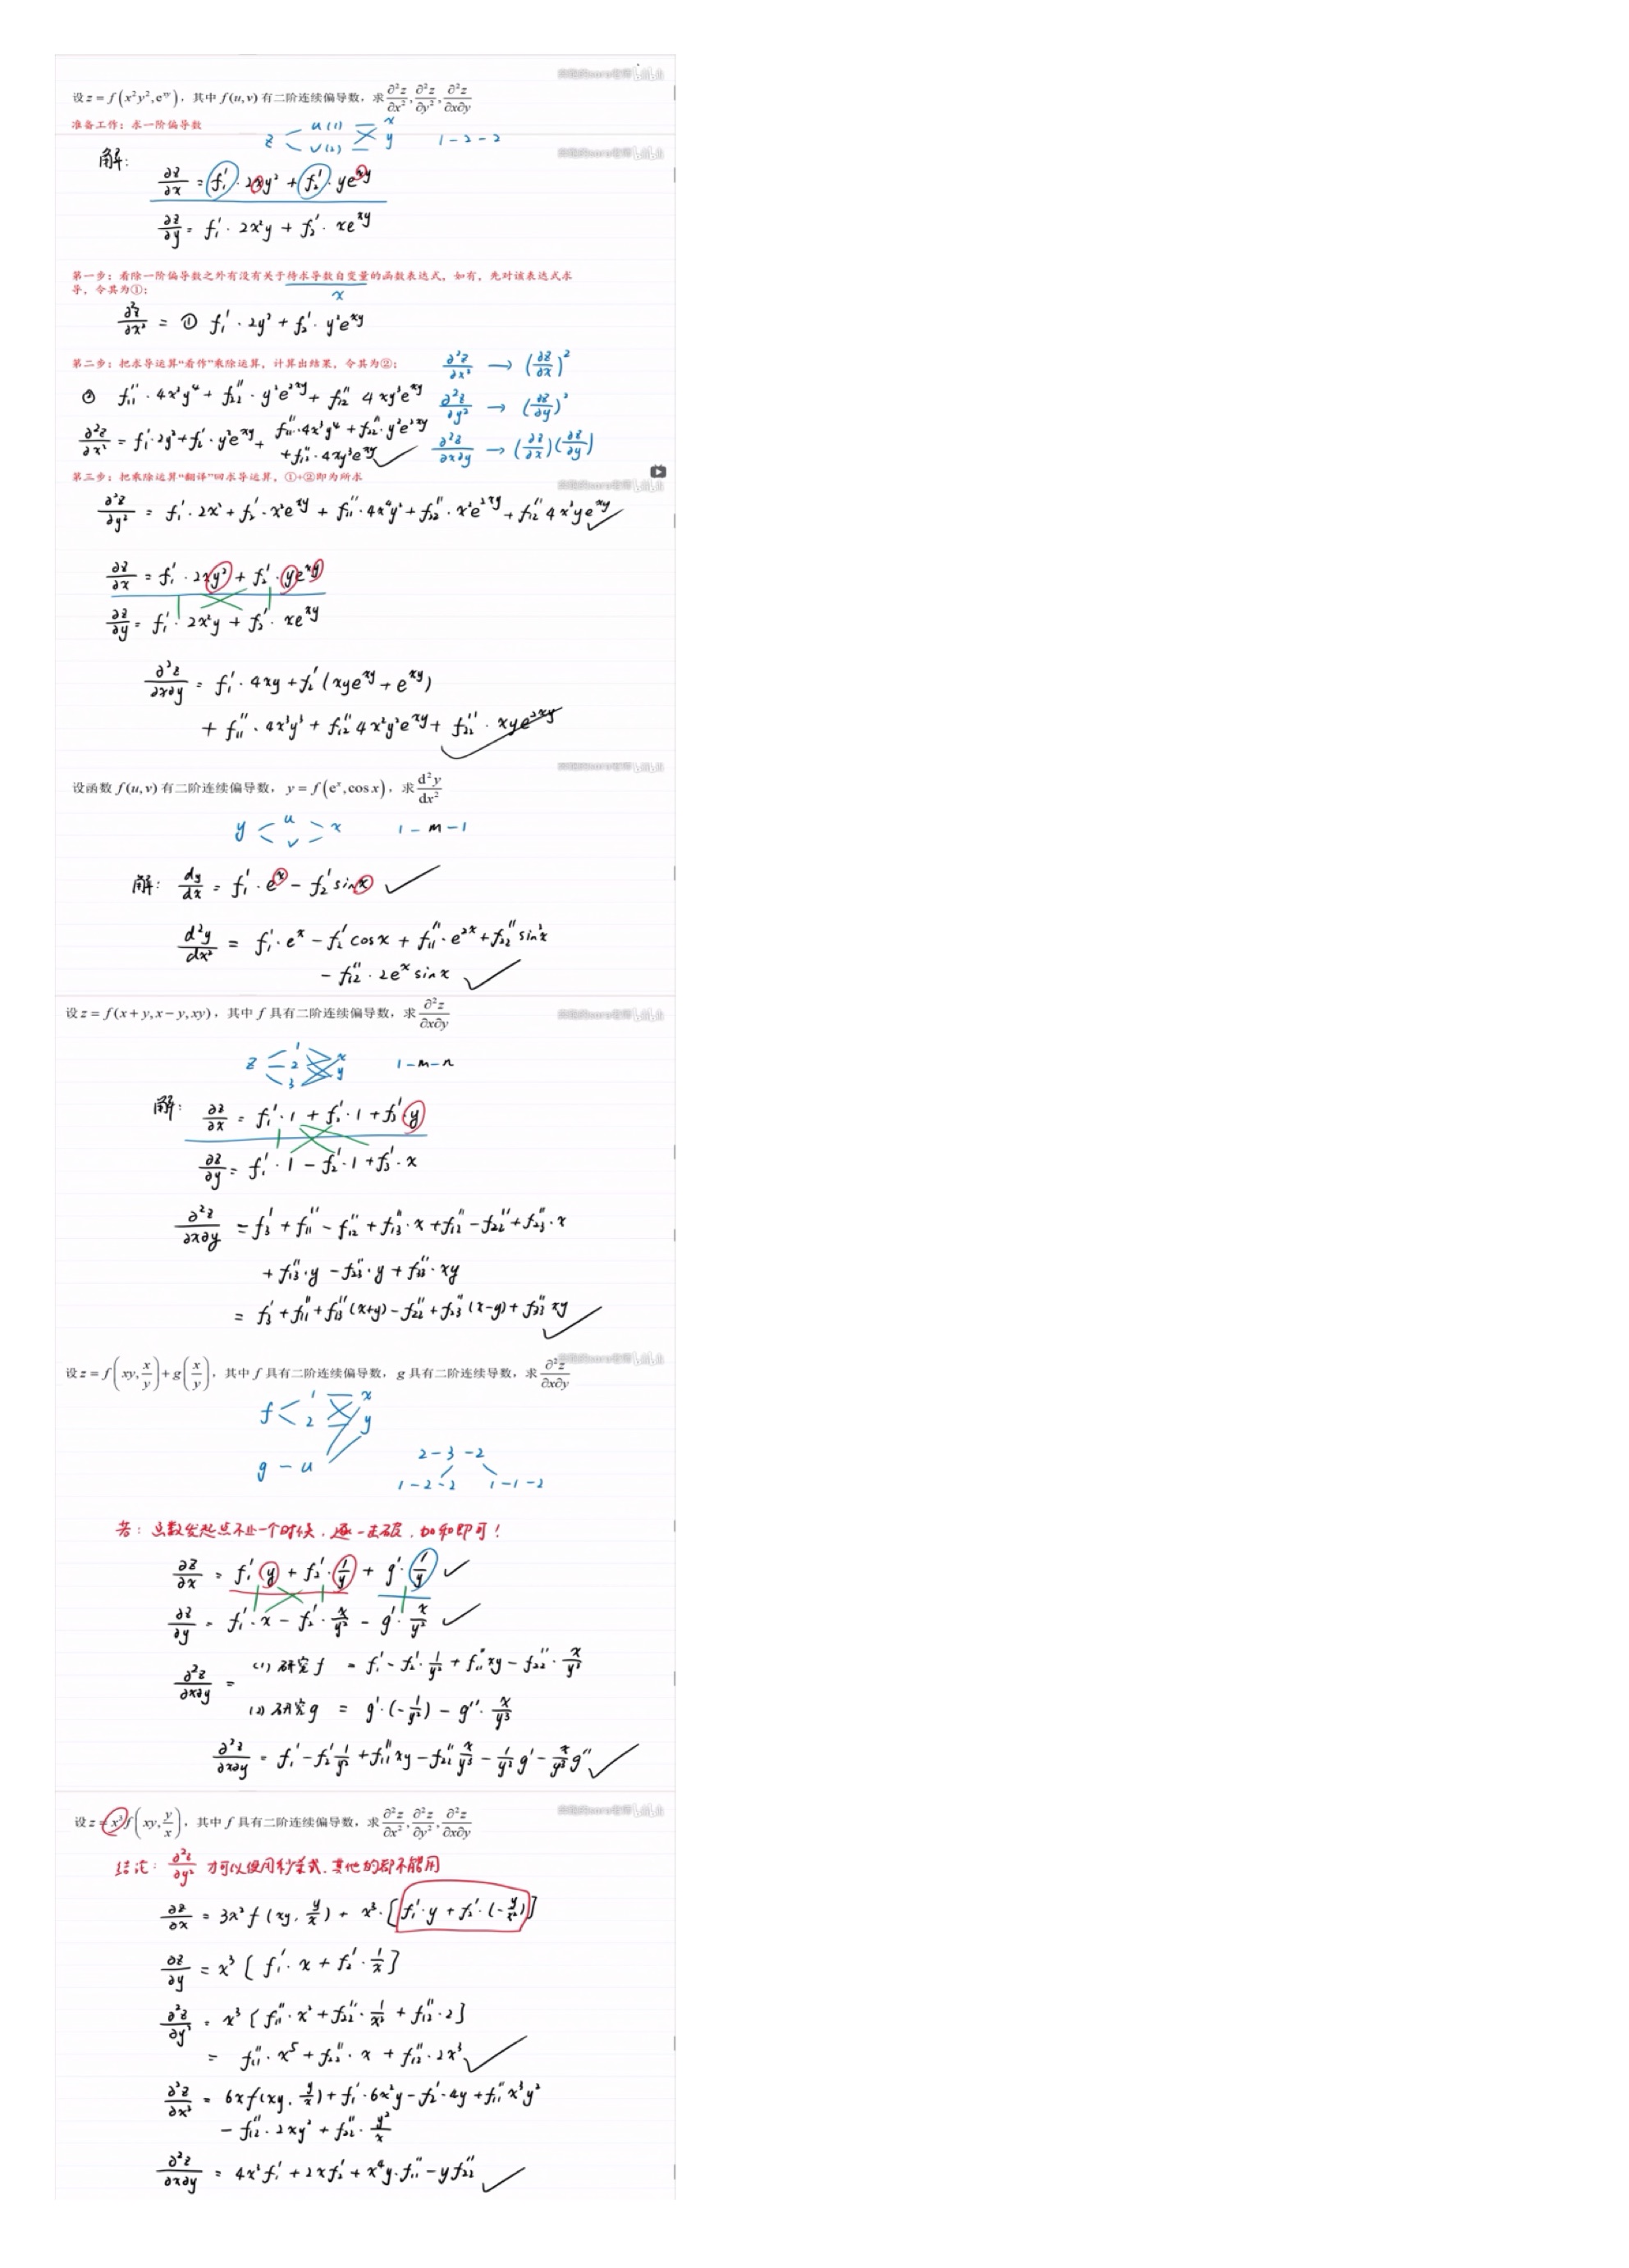 设 z = f(x²y², e^{xy})，其中 f(u,v) 有二阶连续偏导数，求 ∂²z/∂x², ∂²z/∂y², ∂²z/∂x∂y
准备工作：求一阶偏导数
z u(1) v(2) x y 1-2-2
解：
∂z/∂x = f₁′·2xy² + f₂′·ye^{xy}
∂z/∂y = f₁′·2x²y + f₂′·xe^{xy}
第一步：看除一阶偏导数之外有没有关于待求导数自变量的函数表达式，如有，先对该表达式求
导，令其为①；
x
∂²z/∂x² = ① f₁′·2y² + f₂′·y²e^{xy}
第二步：把求导运算“看作”乘除运算，计算出结果，令其为②；
∂²z/∂x² → (∂z/∂x)²
② f₁₁″·4x²y⁴ + f₂₂″·y²e^{2xy} + f₁₂″ 4xy³e^{xy}
∂²z/∂y² → (∂z/∂y)²
∂²z/∂x² = f₁′·2y² + f₂′·y²e^{xy} + f₁₁″·4x²y⁴ + f₂₂″·y²e^{2xy}
+ f₁₂″·4xy³e^{xy}
∂²z/∂x∂y → (∂z/∂x)(∂z/∂y)
第三步：把乘除运算“翻译”回求导运算，①+②即为所求
∂²z/∂y² = f₁′·2x² + f₂′·x²e^{xy} + f₁₁″·4x⁴y² + f₂₂″·x²e^{2xy} + f₁₂″ 4x³ye^{xy}
∂z/∂x = f₁′·2xy² + f₂′·ye^{xy}
∂z/∂y = f₁′·2x²y + f₂′·xe^{xy}
∂²z/∂x∂y = f₁′·4xy + f₂′(xye^{xy} + e^{xy})
+ f₁₁″·4x³y³ + f₁₂″ 4x²y²e^{xy} + f₂₂″·xye^{2xy}
设函数 f(u,v) 有二阶连续偏导数，y = f(e^x, cos x)，求 d²y/dx²
y u v x 1-m-1
解：dy/dx = f₁′·e^x − f₂′sinx
d²y/dx² = f₁′·e^x − f₂′cosx + f₁₁″·e^{2x} + f₂₂″sin²x
− f₁₂″·2e^x sinx
设 z = f(x+y, x−y, xy)，其中 f 具有二阶连续偏导数，求 ∂²z/∂x∂y
z 1 2 3 x y 1-m-n
解：∂z/∂x = f₁′·1 + f₂′·1 + f₃′·y
∂z/∂y = f₁′·1 − f₂′·1 + f₃′·x
∂²z/∂x∂y = f₃′ + f₁₁″ − f₁₂″ + f₁₃″·x + f₁₂″ − f₂₂″ + f₂₃″·x
+ f₁₃″·y − f₂₃″·y + f₃₃″·xy
= f₃′ + f₁₁″ + f₁₃″(x+y) − f₂₂″ + f₂₃″(x−y) + f₃₃″xy
设 z = f(xy, x/y) + g(x/y)，其中 f 具有二阶连续偏导数，g 具有二阶连续导数，求 ∂²z/∂x∂y
f 1 2 x y
g − u
2-3-2
1-2-2 1-1-2
若：函数发起点不止一个时候，逐一击破，加和即可！
∂z/∂x = f₁′·y + f₂′·1/y + g′·1/y
∂z/∂y = f₁′·x − f₂′·x/y² − g′·x/y²
∂²z/∂x∂y =
(1) 研究f = f₁′ − f₂′·1/y² + f₁₁″xy − f₂₂″·x/y³
(2) 研究g = g′·(−1/y²) − g″·x/y³
∂²z/∂x∂y = f₁′ − f₂′1/y² + f₁₁″xy − f₂₂″x/y³ − 1/y² g′ − x/y³ g″
设 z = x³f(xy, y/x)，其中 f 具有二阶连续偏导数，求 ∂²z/∂x², ∂²z/∂y², ∂²z/∂x∂y
结论：∂²z/∂y² 才可以使用秒杀武，其他的都不能用
∂z/∂x = 3x²f(xy, y/x) + x³·[f₁′·y + f₂′·(−y/x²)]
∂z/∂y = x³[f₁′·x + f₂′·1/x]
∂²z/∂y² = x³[f₁₁″·x² + f₂₂″·1/x² + f₁₂″·2]
= f₁₁″·x⁵ + f₂₂″·x + f₁₂″·2x³
∂²z/∂x² = 6xf(xy, y/x) + f₁′·6x²y − f₂′·4y + f₁₁″x³y²
− f₁₂″·2xy² + f₂₂″·y²/x
∂²z/∂x∂y = 4x³f₁′ + 2xf₂′ + x⁴y·f₁₁″ − yf₂₂″